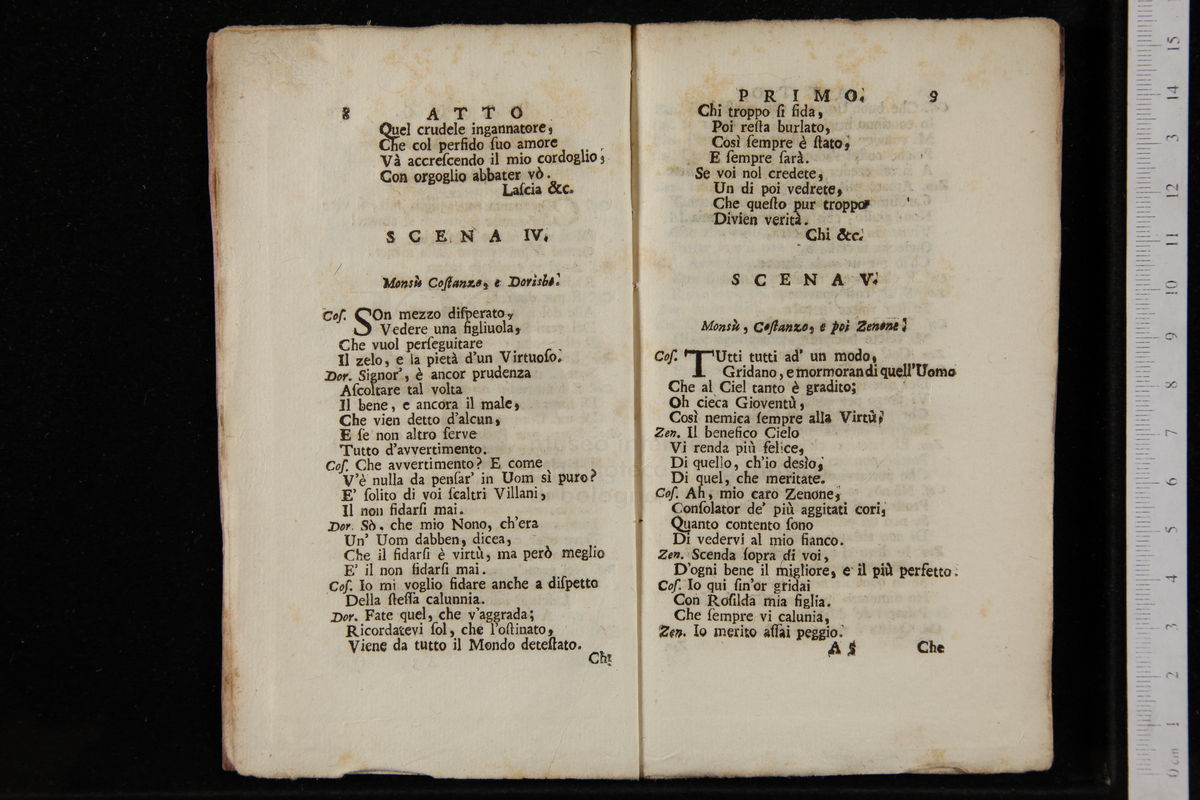 8 ATTO
Quel crudele ingannatore,
Che col perfido ſuo amore
Và accreſcendo il mio cordoglio,
Con orgoglio abbater vò.
Laſcia &c.
SCENA IV.
Monsù Coſtanzo, e Dorisbe.
Coſ. SOn mezzo diſperato,
Vedere una figliuola,
Che vuol perſeguitare
Il zelo, e la pietà d'un Virtuoſo.
Dor. Signor', è ancor prudenza
Aſcoltare tal volta
Il bene, e ancora il male,
Che vien detto d'alcun,
E ſe non altro ſerve
Tutto d'avvertimento.
Coſ. Che avvertimento? E come
V'è nulla da penſar' in Uom sì puro?
E' ſolito di voi ſcaltri Villani,
Il non fidarſi mai.
Dor. Sò, che mio Nono, ch'era
Un' Uom dabben, dicea,
Che il fidarſi è virtù, ma però meglio
E' il non fidarſi mai.
Coſ. Io mi voglio fidare anche a diſpetto
Della ſteſſa calunnia.
Dor. Fate quel, che v'aggrada;
Ricordatevi ſol, che l'oſtinato,
Viene da tutto il Mondo deteſtato.
Chi
PRIMO. 9
Chi troppo ſi fida,
Poi reſta burlato,
Così ſempre è ſtato,
E ſempre ſarà.
Se voi nol credete,
Un dì poi vedrete,
Che queſto pur troppo
Divien verità.
Chi &c.
SCENA V.
Monsù, Coſtanzo, e poi Zenone.
Coſ. TUtti tutti ad' un modo,
Gridano, e mormoran di quell'Uomo
Che al Ciel tanto è gradito;
Oh cieca Gioventù,
Così nemica ſempre alla Virtù?
Zen. Il benefico Cielo
Vi renda più felice,
Di quello, ch'io desìo,
Di quel, che meritate.
Coſ. Ah, mio caro Zenone,
Conſolator de' più aggitati cori,
Quanto contento ſono
Di vedervi al mio fianco.
Zen. Scenda ſopra di voi,
D'ogni bene il migliore, e il più perfetto.
Coſ. Io qui fin'or gridai
Con Roſilda mia figlia.
Che ſempre vi calunia,
Zen. Io merito aſſai peggio.
A 5 Che